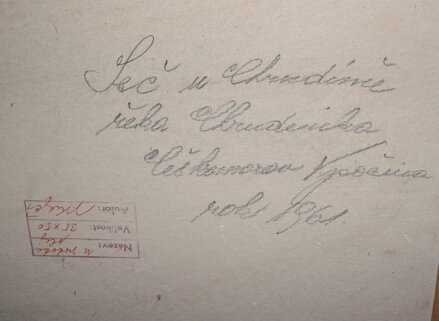 Seč u Chrudimě
řeka Chrudimka
Českomorav Vysočina
rok 1961.
Název:
Velikost: 35 x 50
Autor: